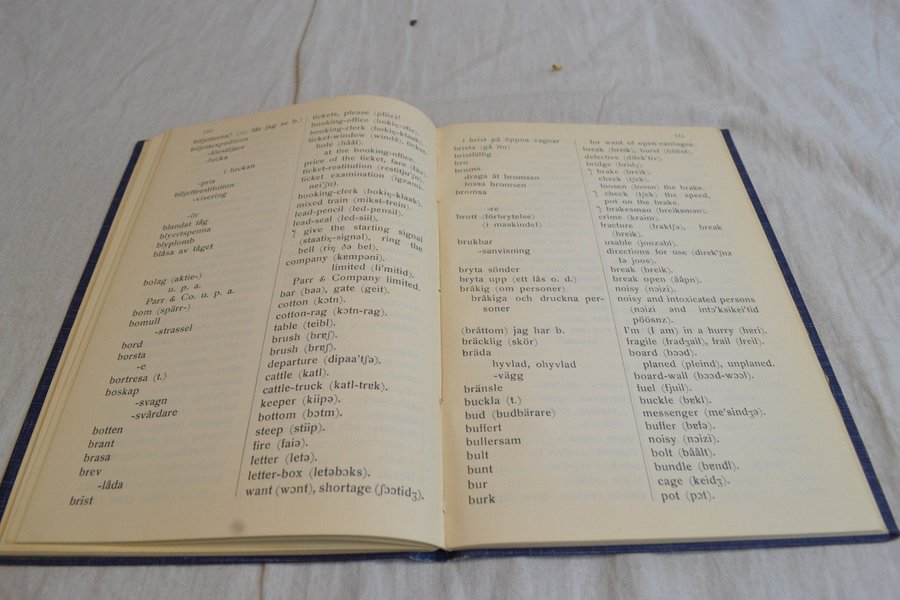 110
biljetterna! får jag se b.) tickets, please (pliiz)!
biljettexpedition booking-office
-försäljare booking-clerk (bokiŋ-klaak).
-lucka ticket-window (windå), ticket-
hole (håål).
i luckan at the booking-office.
-pris price of the ticket, fare
biljettrestitution ticket-restitution
-visering ticket examination (igzami-
nei'ʃn).
-ör booking-clerk (bokiŋ-klaak).
blandat tåg mixed train (mikst-trein).
blyertspenna lead-pencil (led-pensil).
blyplomb lead-seal (led-siil).
blåsa av tåget give the starting signal
(staatiŋ-signəl), ring the
bell (riŋ ðə bel).
bolag (aktie-) company (kɐmpəni).
u. p. a. limited (li'mitid).
Parr & Co. u. p. a. Parr & Company limited.
bom (spärr-) bar (baa), gate (geit).
bomull cotton (kɔtn).
-strassel cotton-rag (kɔtn-rag).
bord table (teibl).
borsta brush (brɐʃ).
-e brush (brɐʃ).
bortresa (t.) departure (dipaa'tʃə).
boskap cattle (katl).
-svagn cattle-truck (katl-trɐk).
-svårdare keeper (kiipə).
botten bottom (bɔtm).
brant steep (stiip).
brasa fire (faiə).
brev letter (letə).
-låda letter-box (letəbɔks).
brist want (wɔnt), shortage (ʃɔɔtidʒ).
111
i brist på öppna vagnar for want of open carriages.
brista (gå itu) break (breik), burst (bööst).
bristfällig defective (difek'tiv).
bro bridge (bridʒ).
broms brake (breik).
draga åt bromsen check (tʃek).
lossa bromsen loosen (loosn) the brake.
bromsa check (tʃek) the speed,
put on the brake.
-re brakesman (breiksmən).
brott (förbrytelse) crime (kraim).
(i maskindel) fracture (fraktʃə), break
(breik).
brukbar usable (joozəbl).
-sanvisning directions for use (direk'ʃnz
fə joos).
bryta sönder break (breik).
bryta upp (ett lås o. d.) break open (ååpn).
bråkig (om personer) noisy (nɔizi).
bråkiga och druckna per- noisy and intoxicated persons
soner (nɔizi ənd intɔ'ksikei'tid
pöösnz).
(bråttom) jag har b. I'm (I am) in a hurry (hɐri).
bräcklig (skör) fragile (fradʒail), frail (freil).
bräda board (bɔɔd).
hyvlad, ohyvlad planed (pleind), unplaned.
-vägg board-wall (bɔɔd-wɔɔl).
bränsle fuel (fjuil).
buckla (t.) buckle (bɐkl).
bud (budbärare) messenger (me'sindʒə).
buffert buffer (bɐfə).
bullersam noisy (nɔizi).
bult bolt (båålt).
bunt bundle (bɐndl).
bur cage (keidʒ).
burk pot (pɔt).